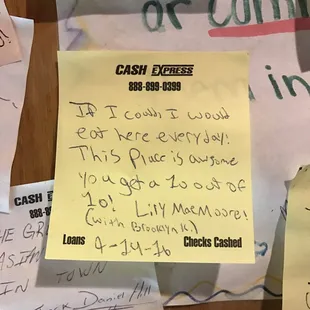 or com
in
CASH EXPRESS
888-899-0399
If I could I would
eat here everyday!
This Place is awsome
you get a 10 out of
10! Lily MaeMoore!
(with Brooklyn K.)
4-14-16
Loans Checks Cashed
CASH
888-8
HE GR
IN
TOWN
Jack Daniel Hill